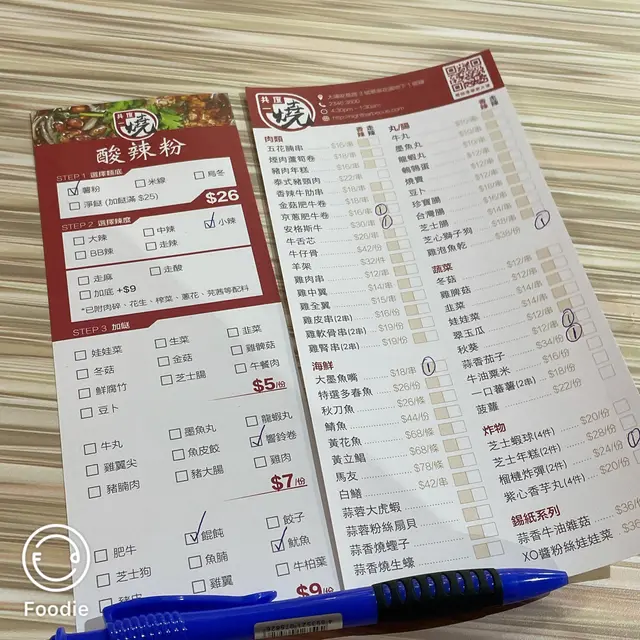 共堆一燒
酸辣粉
STEP 1 選擇麵底
薯粉 米線 烏冬
淨餸 (加餸滿 $25) $26
STEP 2 選擇辣度
大辣 中辣 小辣
BB辣 走辣
走麻 走酸
加底 +$9
*已附肉碎、花生、榨菜、蔥花、芫茜等配料
STEP 3 加餸
娃娃菜 生菜 韭菜
冬菇 金菇 雞髀菇
鮮腐竹 芝士腸 午餐肉
豆卜
$5/份
牛丸 墨魚丸 龍蝦丸
雞翼尖 魚皮餃 響鈴卷
豬腩肉 豬大腸 雞肉
$7/份
肥牛 餛飩 餃子
芝士狗 魚腩 魷魚
雞翼 牛柏葉
$9/份
4:30pm - 1:30am
肉類
五花腩串 $16/串
煙肉蘆筍卷 $18/串
豬肉年糕 $15/串
泰式豬頸肉 $22/串
香辣牛肋串
金菇肥牛卷
京蔥肥牛卷 $16/串 1
安格斯牛 $30/串 1
牛舌芯 $26/串
牛仔骨 $42/份
羊架 $32/件
雞肉串 $12/串
雞中翼 $14/串
雞全翼 $15/串
雞皮串(2串) $16/份
雞軟骨串(2串) $19/份
雞腎串(2串) $19/份
海鮮
大墨魚嘴 $18/串 1
特選多春魚 $26/份
秋刀魚 $26/條
鯖魚 $44/份
黃花魚 $68/條
黃立鯧 $68/條
馬友 $78/條
白鱔 $42/串
蒜蓉大虎蝦
蒜蓉粉絲扇貝
蒜香燒蟶子
蒜香燒生蠔
丸/腸
牛丸
墨魚丸
龍蝦丸
鵪鶉蛋
燒賣
豆卜
珍寶腸
台灣腸
芝士腸
芝心獅子狗
雞泡魚乾 $38/份
蔬菜
冬菇 $12/串
雞脾菇
韭菜
娃娃菜
翠玉瓜 $12/串
秋葵 $12/串 1
蒜香茄子 $34/份 1
牛油粟米 $16/份
一口蕃薯(2串) $18/份
菠蘿 $22/份
炸物
芝士蝦球(4件) $20/份
芝士年糕(2件) $28/份
榴槤炸彈(2件) $24/份 1
紫心香芋丸(4件) $20/份
錫紙系列
蒜香牛油雜菇
XO醬粉絲娃娃菜
Foodie